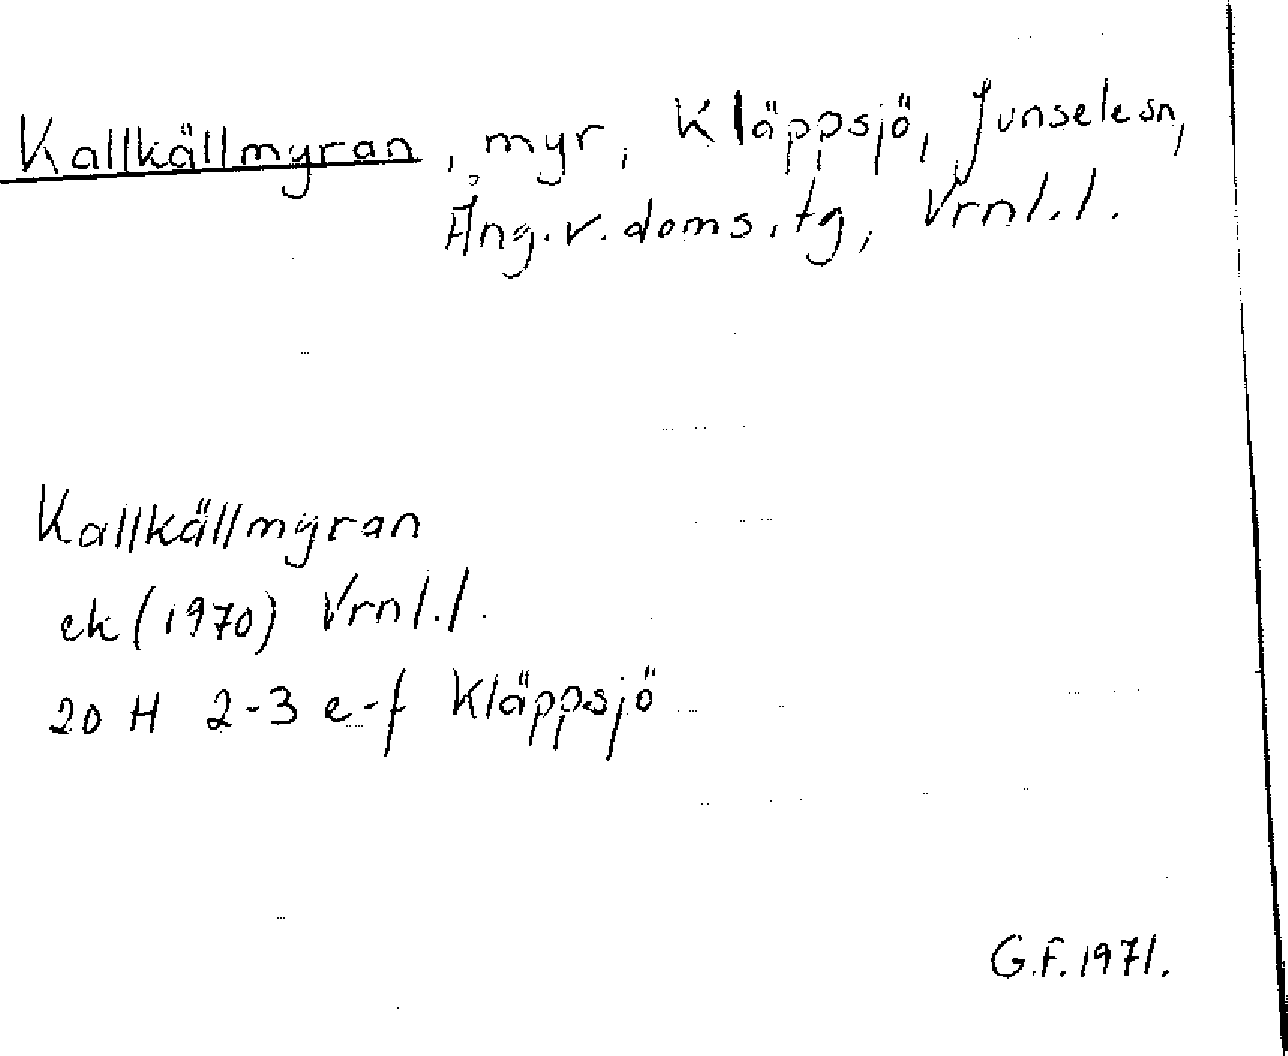 Kallkällmyran, myr, Kläppsjö, Junsele sn,
Ång. v. doms. tg, Vrnl. l.
Kallkällmyran
ek (1970) Vrnl. l.
20 H 2-3 e-f Kläppsjö
G.F. 1971.